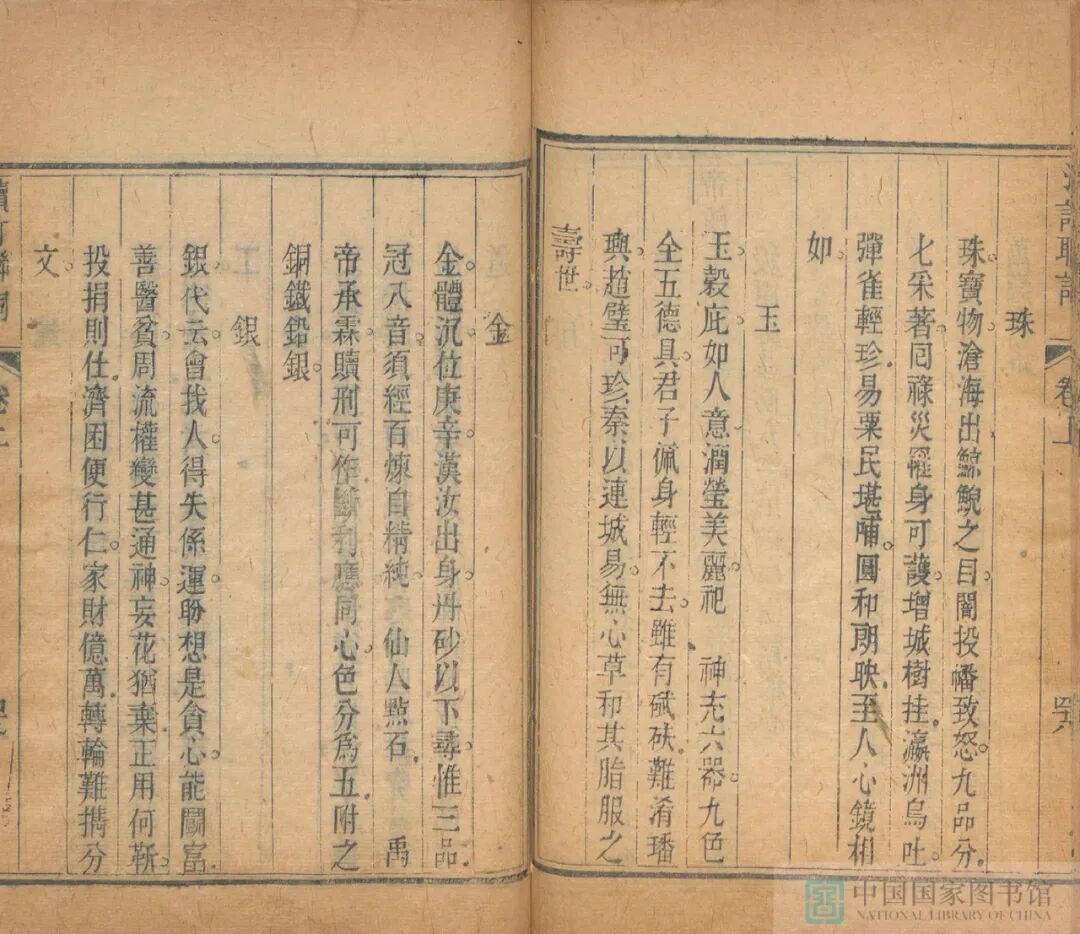 珠
珠寶物滄海出鯨鯢之目闇投幡致怒九品分
七采著囘祿災罹身可護增城樹挂瀛洲烏吐
彈雀輕珍易粟民堪哺圓和朗映至人心鏡相
如
玉
玉穀庇如人意潤瑩美麗祀　神充六器九色
全五德具君子佩身輕不去雖有碔砆難淆璠
璵趙璧可珍秦以連城易無心草和其脂服之
壽世
金
金體沉位庚辛漢汝出身丹砂以下尋惟三品
冠八音須經百煉自精純仙人點石　禹
帝承霖贖刑可作斷利應同心色分爲五附之
銅鐵鉛銀
銀
銀代云曾找人得失係運盼想是貪心能闢富
善醫貧周流權變甚通神妄花猶棄正用何靳
投捐則仕濟困便行仁家財億萬轉輪難攜分
文
卷上
中国国家图书馆
NATIONAL LIBRARY OF CHINA